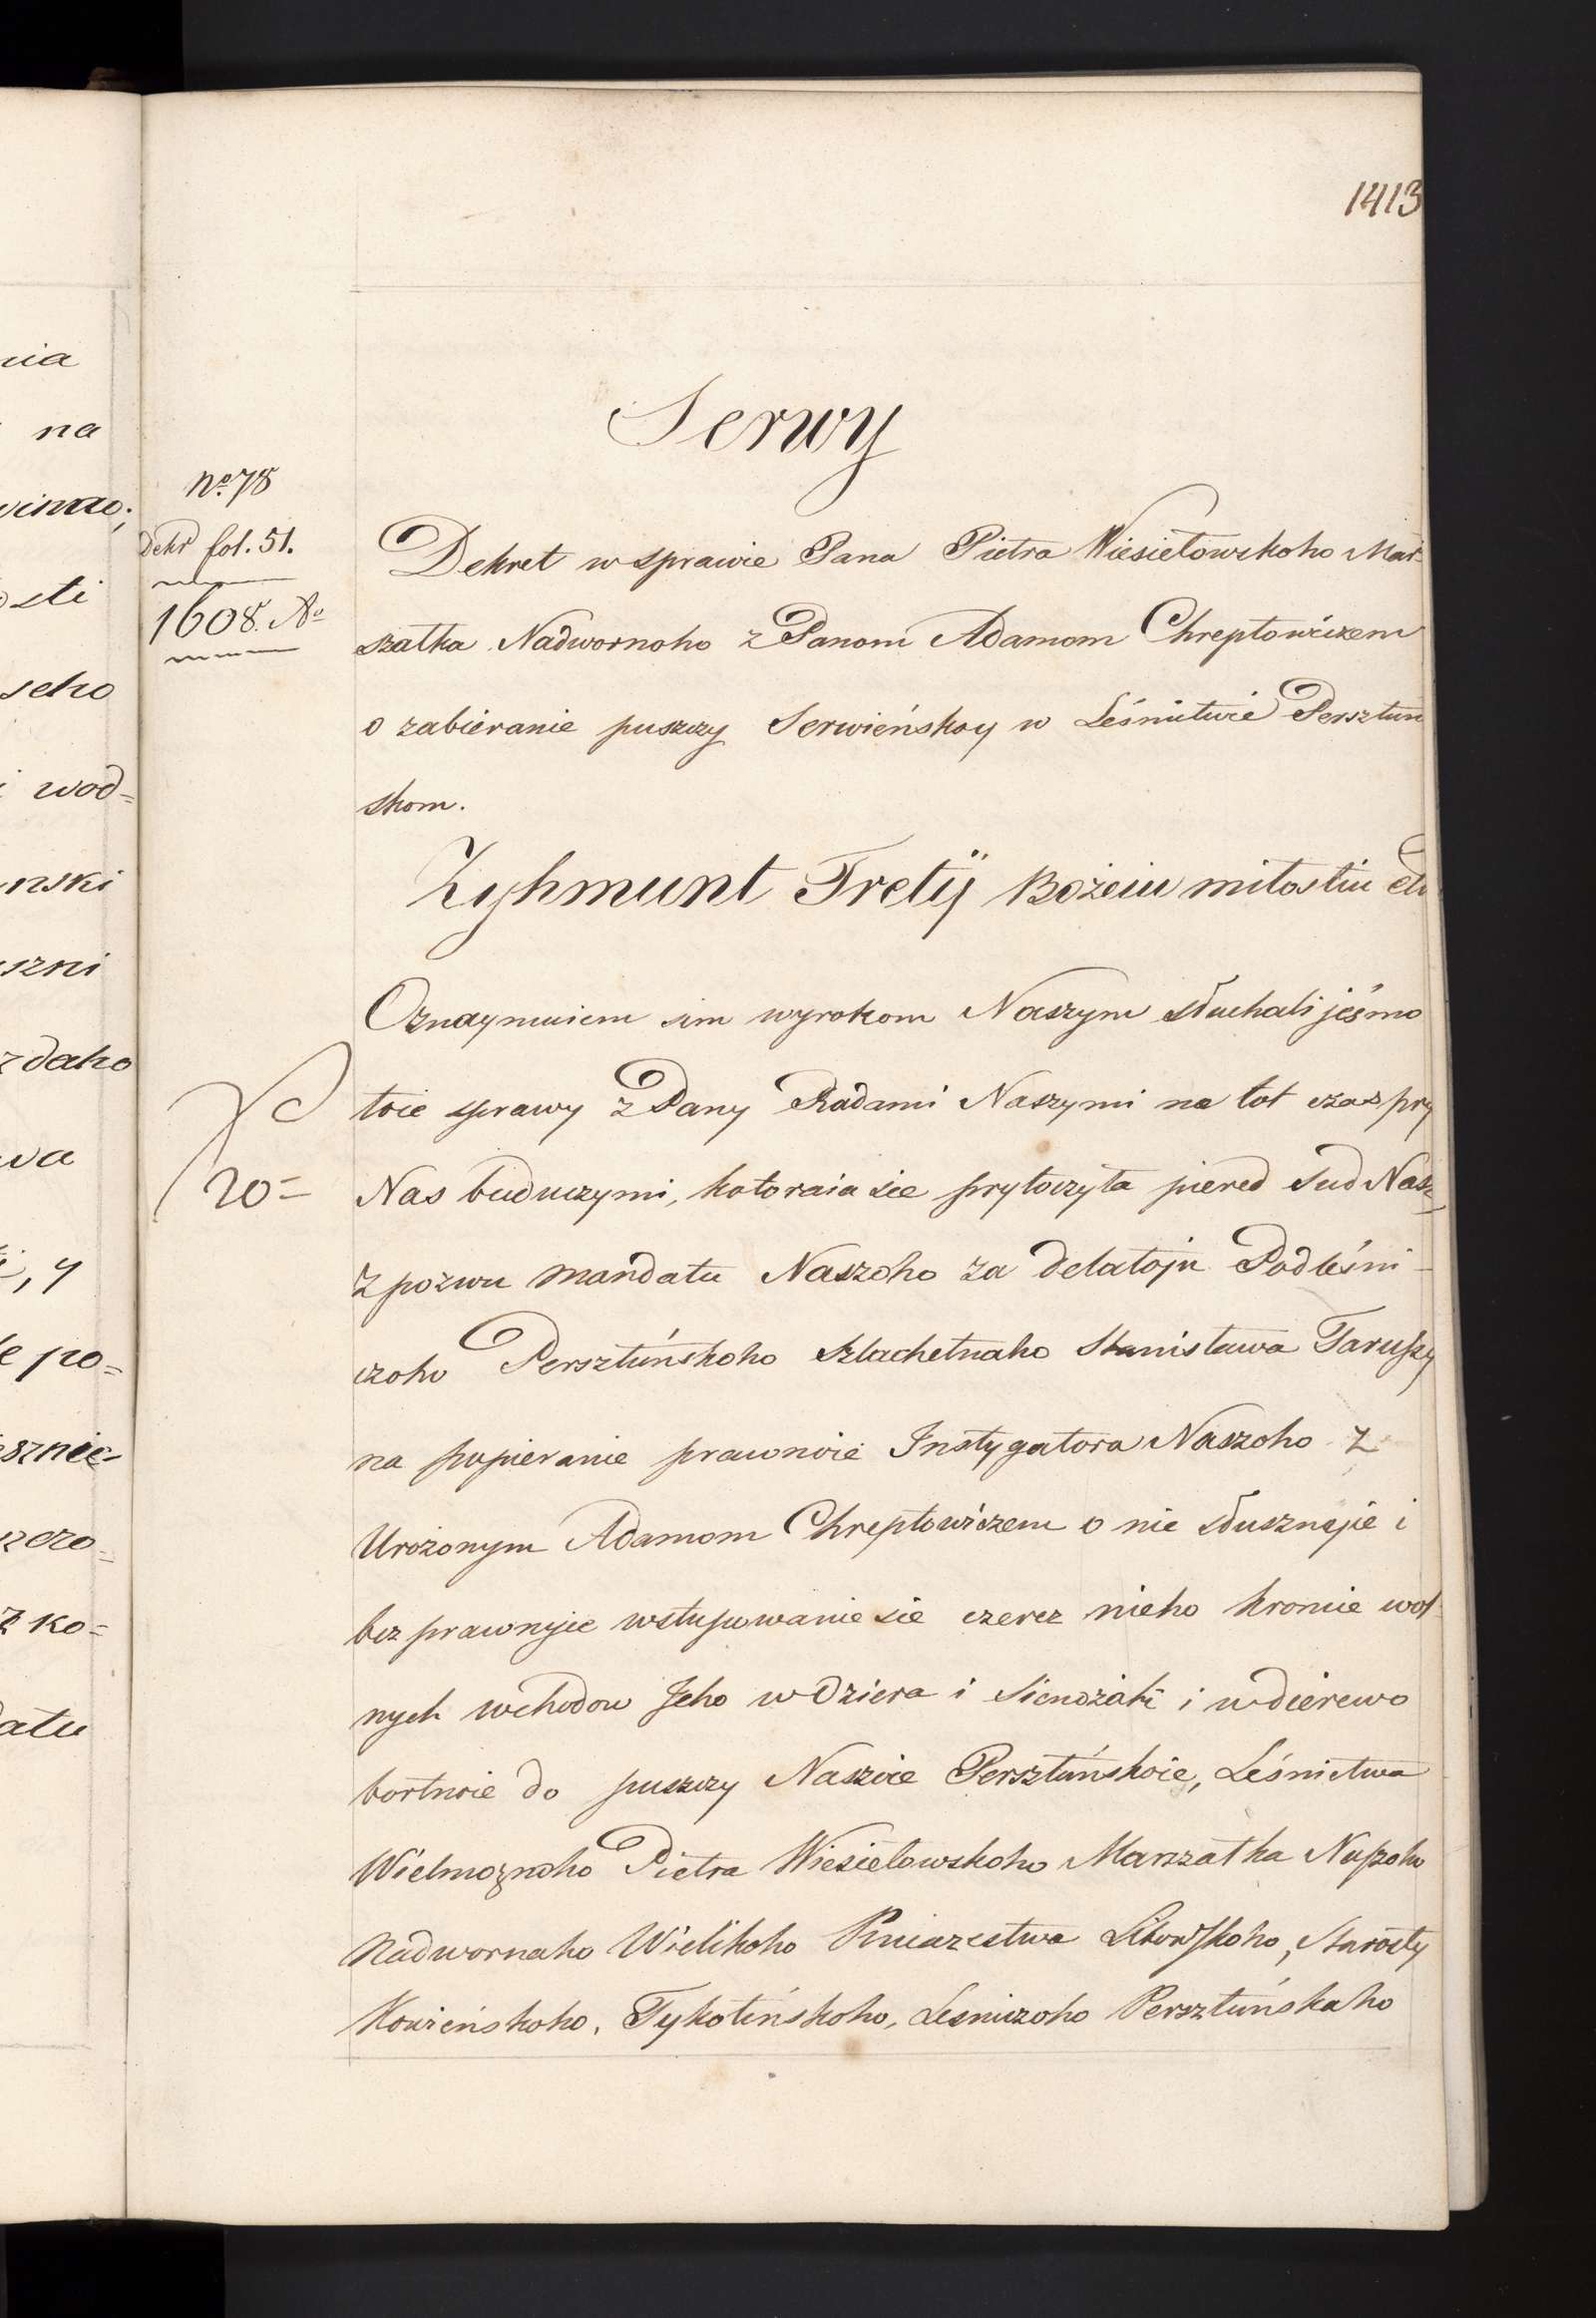 1413
Serwy
No. 78
Dekr fol. 51.
1608. Ao
Dekret w sprawie Pana Pietra Wiesiełowskoho Mar-
szałka Nadwornoho z Panom Adamom Chreptowiczem
o zabieranie puszczy Serwieńskoy w Leśnictwie Persztun
skom.
Zyhmunt Tretij Bożeiu miłostiu etc
Oznaymuiem sim wyrokom Naszym słuchali jeśmo
toie sprawy z Pany Radami Naszymi na tot czas pry
Nas buduczymi, kotoraia sie prytoczyła pered Sud Nasz,
z pozwu mandatu Naszoho za delatoju Podleśni-
czoho Persztuńskoho Szlachetnaho Stanisława Taruszy
na popieranie prawnoie Instygatora Naszoho z
Urożonym Adamom Chreptowiczem o nie słusznoje i
bez prawnyje wstupowanie sie czerez nieho kromie wol
nych wchodow Jeho w Oziera i Sienożati i w dierewo
bortnoie do puszczy Naszoie Persztuńskoie, Leśnictwa
Wielmożnoho Pietra Wiesiełowskoho Marszałka Naszoho
Nadwornaho Wielikoho Kniazestwa Litowskoho, Starosty
Kowieńskoho, Tykotińskoho, Lesniczoho Persztuńskaho
20=
nia
na
sti
seho
i wod=
nski
szni
zdaho
wa
i, y
le po=
sznie-
z ko=
datu